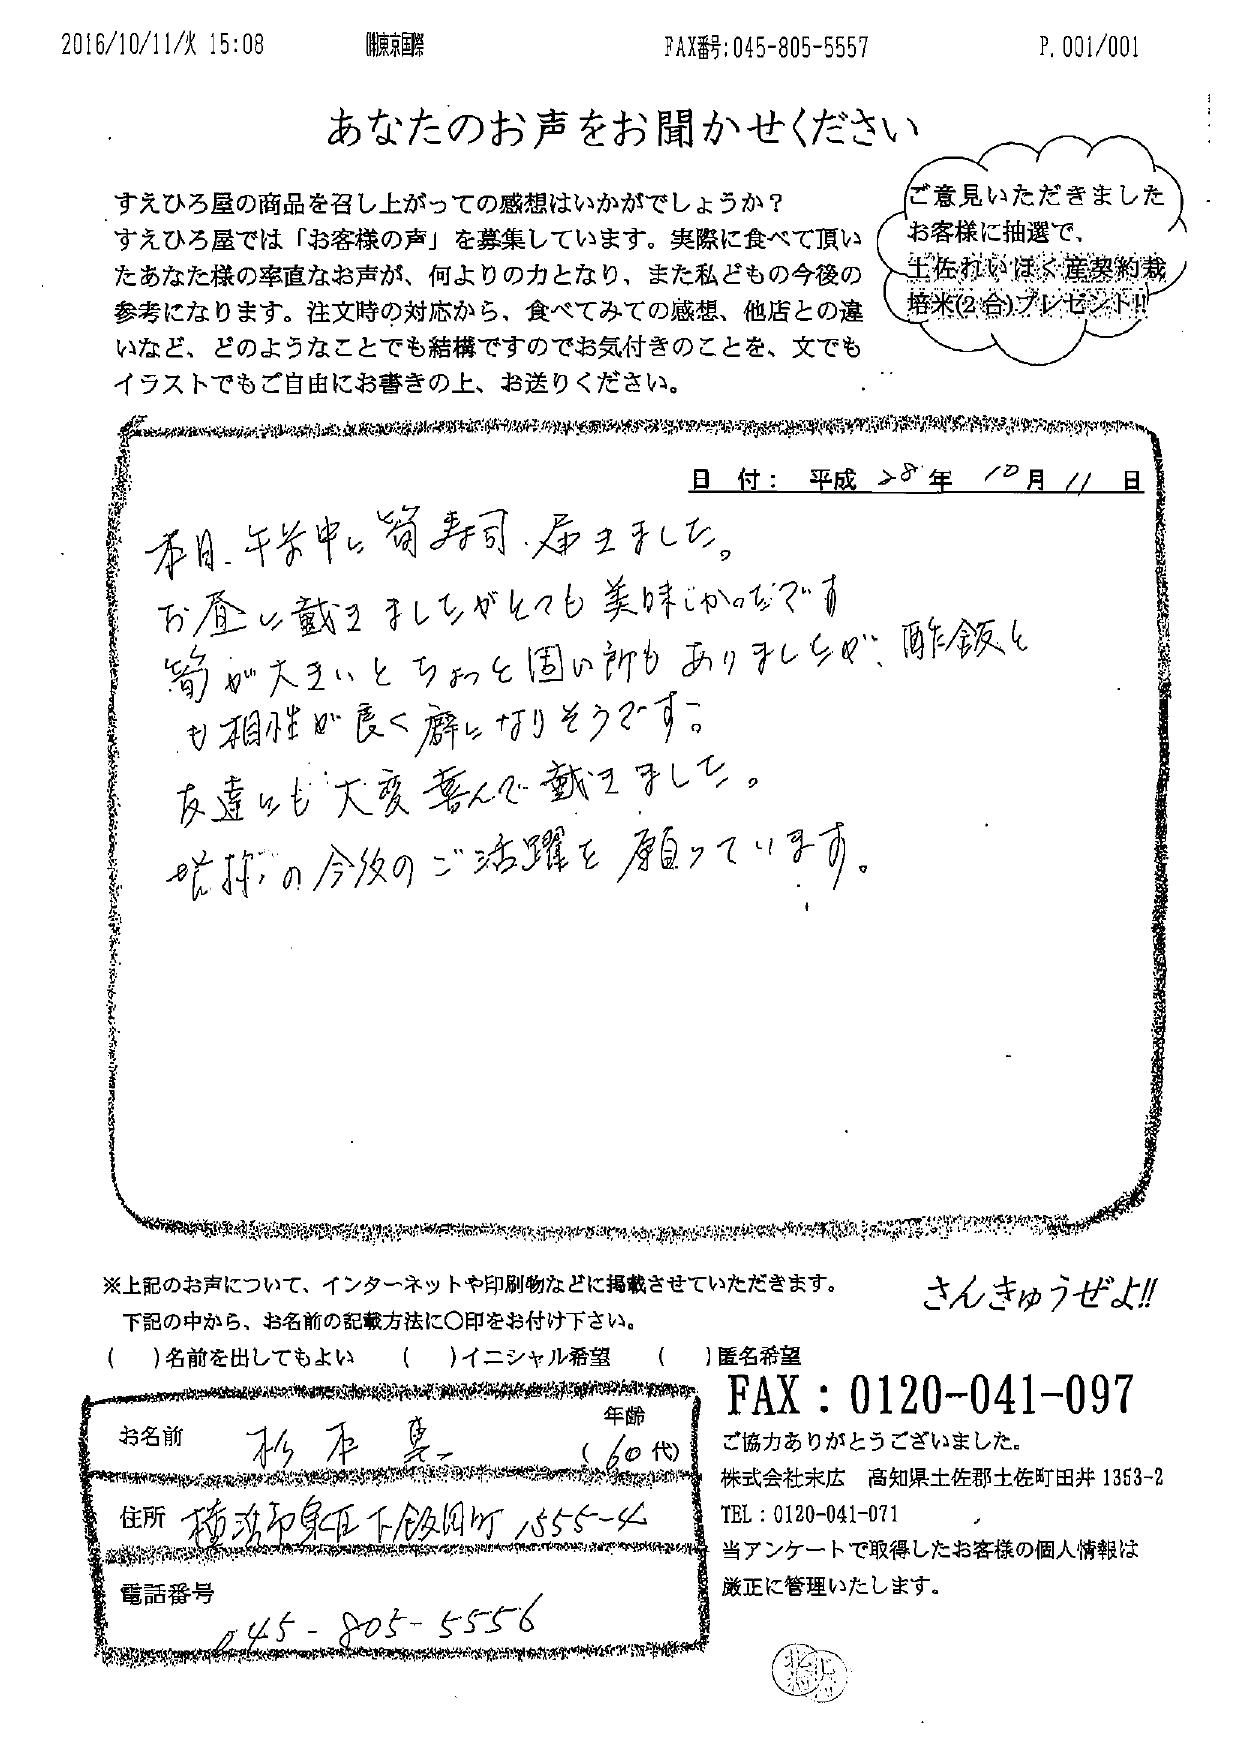 2016/10/11/火 15:08 ㈲東京国際 FAX番号:045-805-5557 P.001/001
あなたのお声をお聞かせください
すえひろ屋の商品を召し上がっての感想はいかがでしょうか？
すえひろ屋では「お客様の声」を募集しています。実際に食べて頂い
たあなた様の率直なお声が、何よりの力となり、また私どもの今後の
参考になります。注文時の対応から、食べてみての感想、他店との違
いなど、どのようなことでも結構ですのでお気付きのことを、文でも
イラストでもご自由にお書きの上、お送りください。
ご意見いただきました
お客様に抽選で、
土佐れいほく産契約栽
培米(2合)プレゼント!!
日 付： 平成 28 年 10 月 11 日
本日、午前中に筍寿司、届きました。
お昼に戴きましたがとても美味しかったです
筍が大きいとちょっと固い所もありましたが、酢飯と
も相性が良く癖になりそうです。
友達にも大変喜んで戴きました。
皆様の今後のご活躍を願っています。
※上記のお声について、インターネットや印刷物などに掲載させていただきます。
下記の中から、お名前の記載方法に〇印をお付け下さい。
( )名前を出してもよい ( )イニシャル希望 ( )匿名希望
さんきゅうぜよ!!
お名前 杉本 真一 年齢 (60代)
住所 横浜市泉区下飯田町1555-4
電話番号 045-805-5556
FAX：0120-041-097
ご協力ありがとうございました。
株式会社末広 高知県土佐郡土佐町田井 1353-2
TEL：0120-041-071
当アンケートで取得したお客様の個人情報は
厳正に管理いたします。